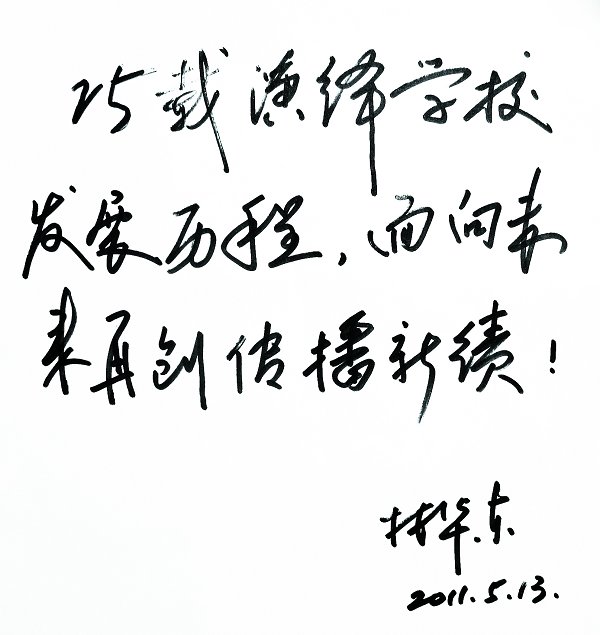 25载演绎学校
发展历程，面向未
来再创传播新绩！
林华东
2011.5.13.